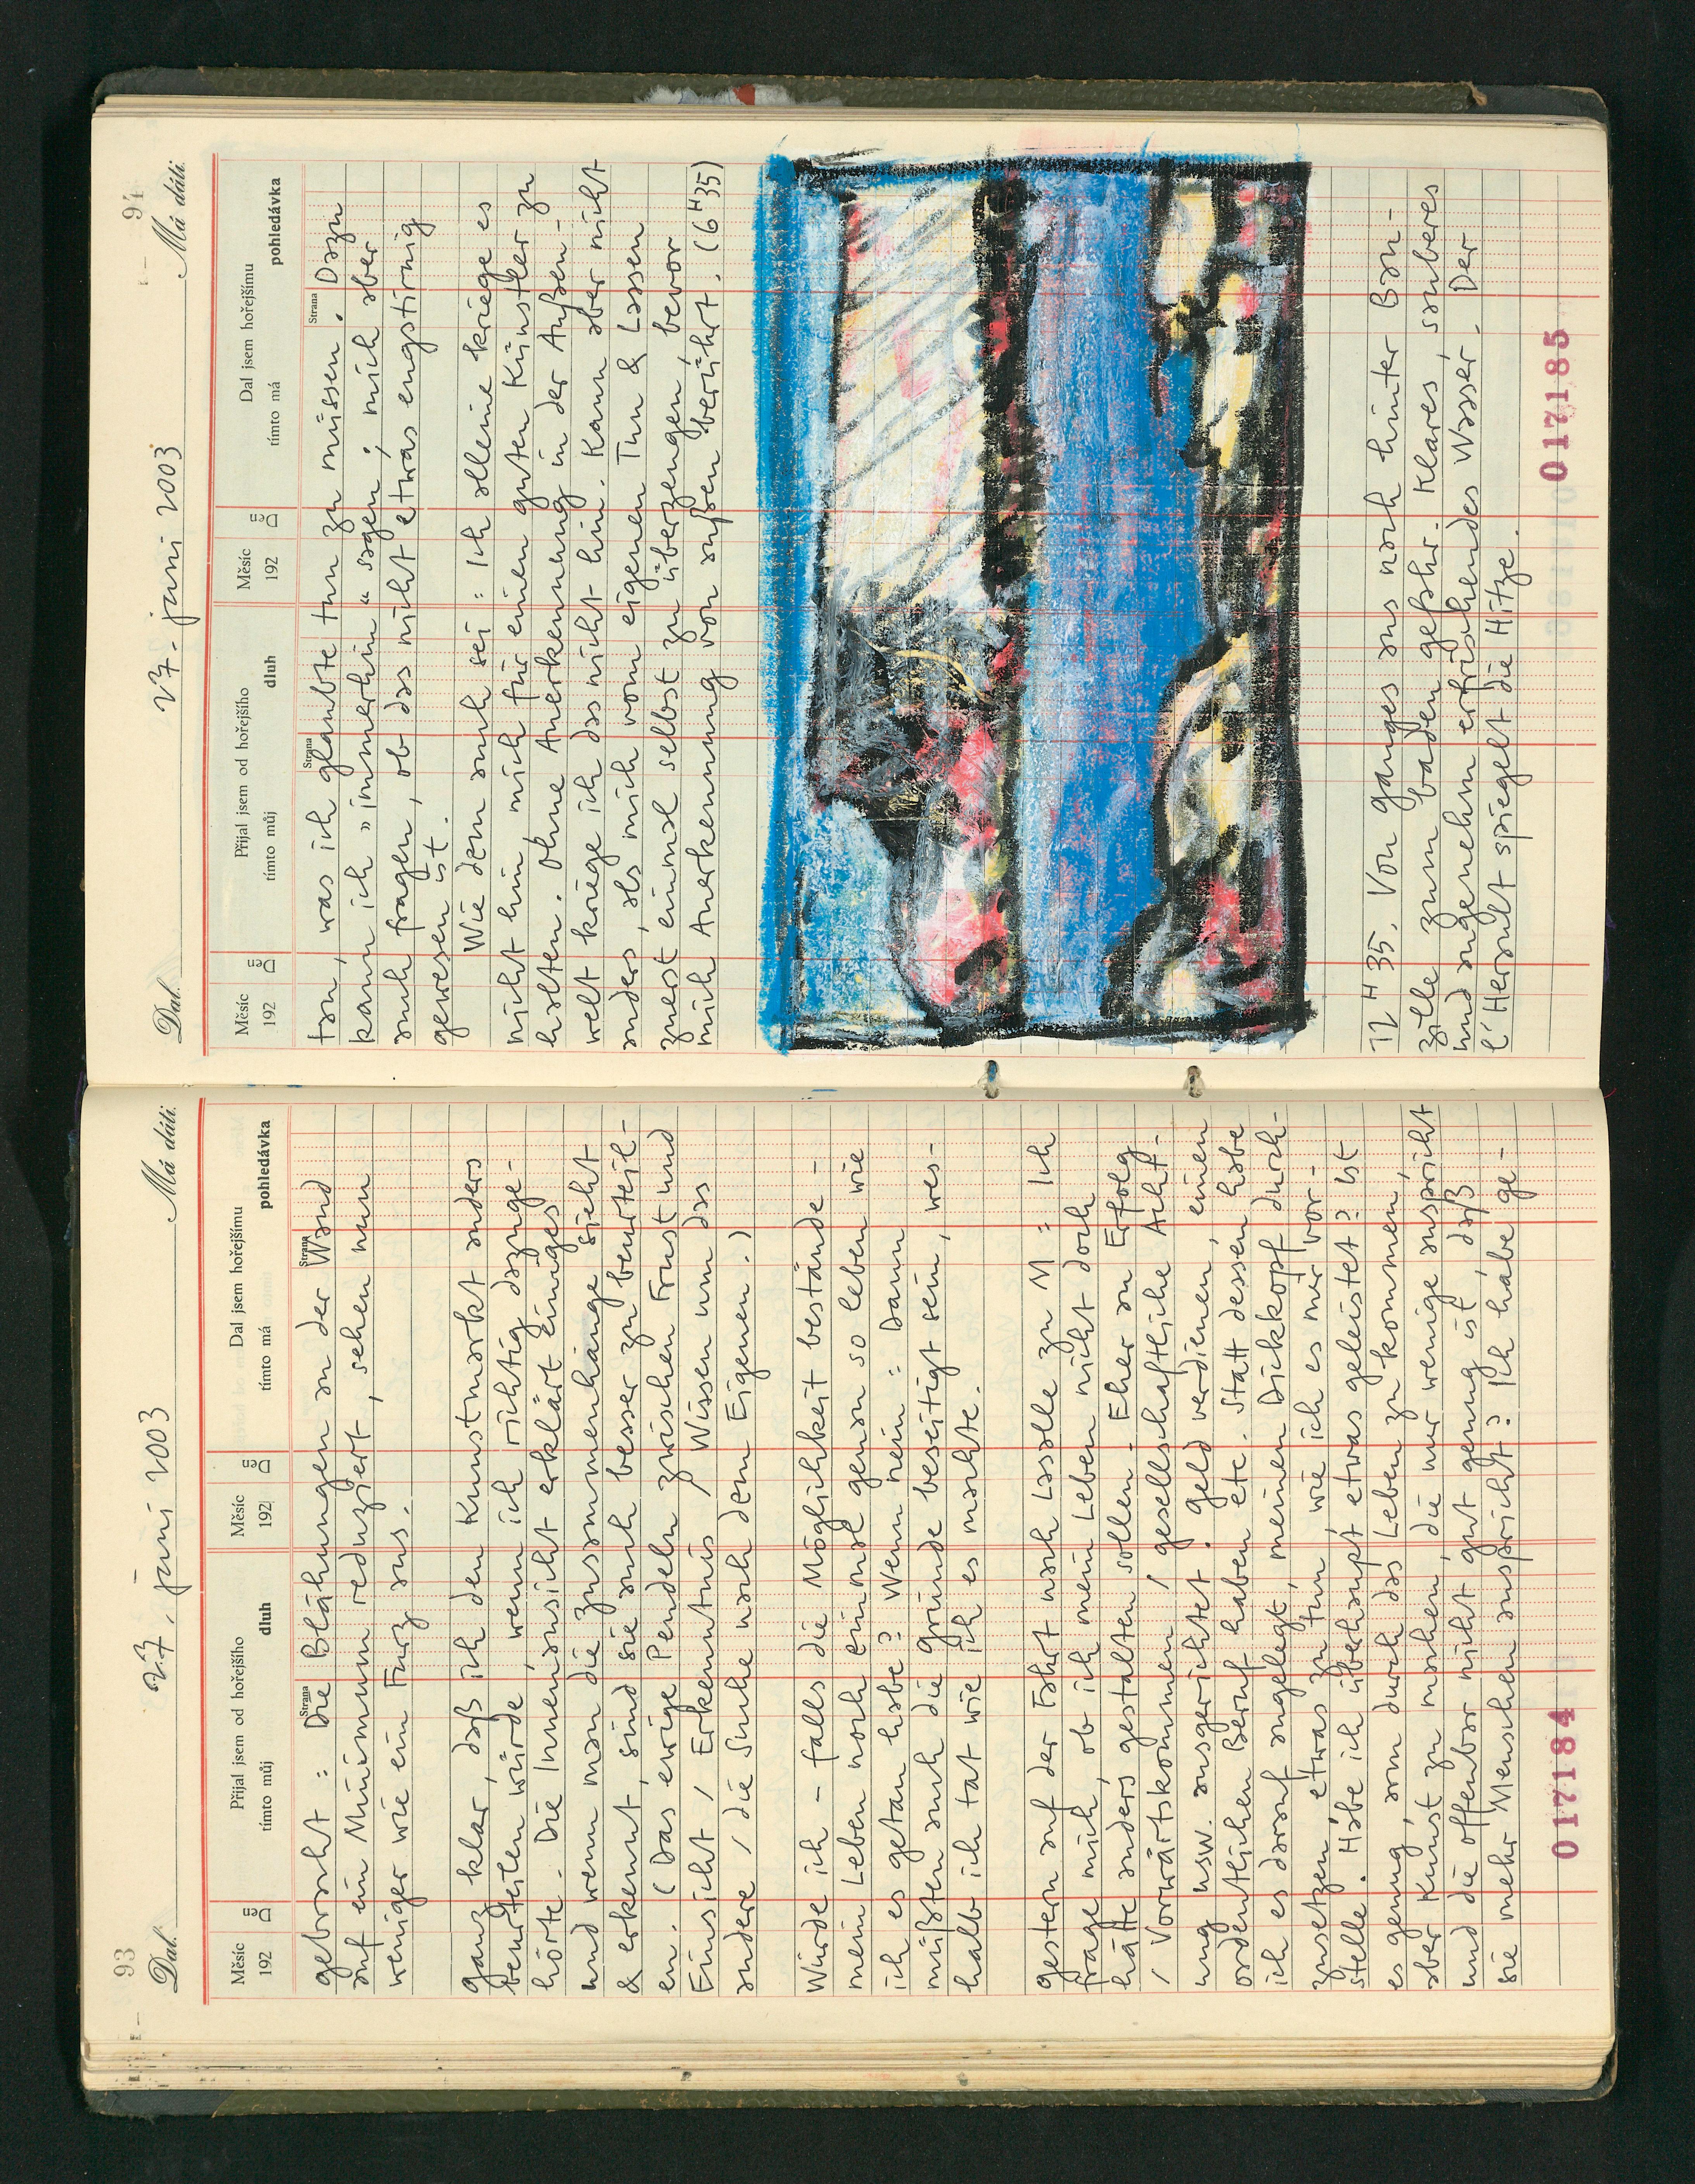 93
Dal. 27. juni 2003 Má dáti.
Měsíc 192 Den Přijal jsem od hořejšího tímto můj dluh Strana Měsíc 192 Den Dal jsem hořejšímu tímto má pohledávka Strana
gebracht: Die Blähungen an der Wand
auf ein Minimum reduziert, sehen nun
weniger wie ein Furz aus.
ganz klar, daß ich den Kunstmarkt anders
beurteilen würde, wenn ich richtig dazuge-
hörte. Die Innenansicht erklärt einiges
und wenn man die Zusammenhänge sieht
& erkennt, sind sie auch besser zu beurteil-
en. (Das ewige Pendeln zwischen Frust und
Einsicht / Erkenntnis / Wissen um das
andere / die Suche nach dem Eigenen.)
Würde ich – falls die Möglichkeit bestände –
mein Leben noch einmal genau so leben wie
ich es getan habe? Wenn nein: Dann
müßten auch die gründe beseitigt sein, wes-
halb ich tat wie ich es machte.
gestern auf der Fahrt nach Lasalle zu M: Ich
frage mich, ob ich mein Leben nicht doch
hätte anders gestalten sollen. Eher an Erfolg
/ Vorwärtskommen / gesellschaftliche Acht-
ung usw. ausgerichtet. geld verdienen, einen
ordentlichen Beruf haben etc. Statt dessen habe
ich es darauf angelegt, meinen Dickkopf durch-
zusetzen, etwas zu tun, wie ich es mir vor-
stelle. Habe ich überhaupt etwas geleistet? Ist
es genug, am durch das Leben zu kommen,
aber Kunst zu machen, die nur wenige anspricht
und die offenbar nicht gut genug ist, daß
sie mehr Menschen anspricht? Ich habe ge-
017184
94
Dal. 27. juni 2003 Má dáti.
Měsíc 192 Den Přijal jsem od hořejšího tímto můj dluh Strana Měsíc 192 Den Dal jsem hořejšímu tímto má pohledávka Strana
tan, was ich glaubte tun zu müssen. Dazu
kann ich »immerhin« sagen; mich aber
auch fragen, ob das nicht etwas engstirnig
gewesen ist.
Wie dem auch sei: Ich alleine kriege es
nicht hin, mich für einen guten Künstler zu
halten. Ohne Anerkennung in der Außen-
welt kriege ich das nicht hin. Kann aber nicht
anders, als mich vom eigenen Tun & Lassen
zuerst einmal selbst zu überzeugen, bevor
mich Anerkennung von außen berührt. (6H35)
12H35. Von ganges aus nach hinter Bau-
zille zum baden gefahr. Klares, sauberes
und angenehm erfrischendes Wasser. Der
l'Herault spiegelt die Hitze.
017185